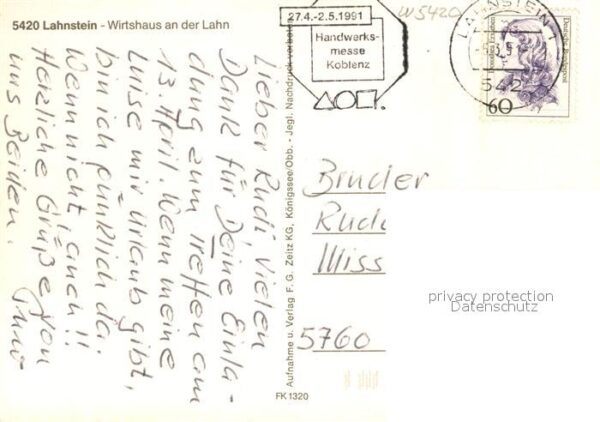 5420 Lahnstein - Wirtshaus an der Lahn
Lieber Rudi, vielen
Dank für Deine Einla-
dung zum Treffen am
13. April. Wenn meine
Luise mir Urlaub gibt,
bin ich pünktlich da.
Wenn nicht, auch!!
Herzliche Grüße von
uns Beiden.
Aufnahme u. Verlag F. G. Zeitz KG, Königssee/Obb. - Jegl. Nachdruck verboten
FK 1320
27.4.-2.5.1991
Handwerks-
messe
Koblenz
W5420
LAHNSTEIN 1
542
Deutsche Bundespost
60
Bruder
Rudi
Miss
5760
privacy protection
Datenschutz